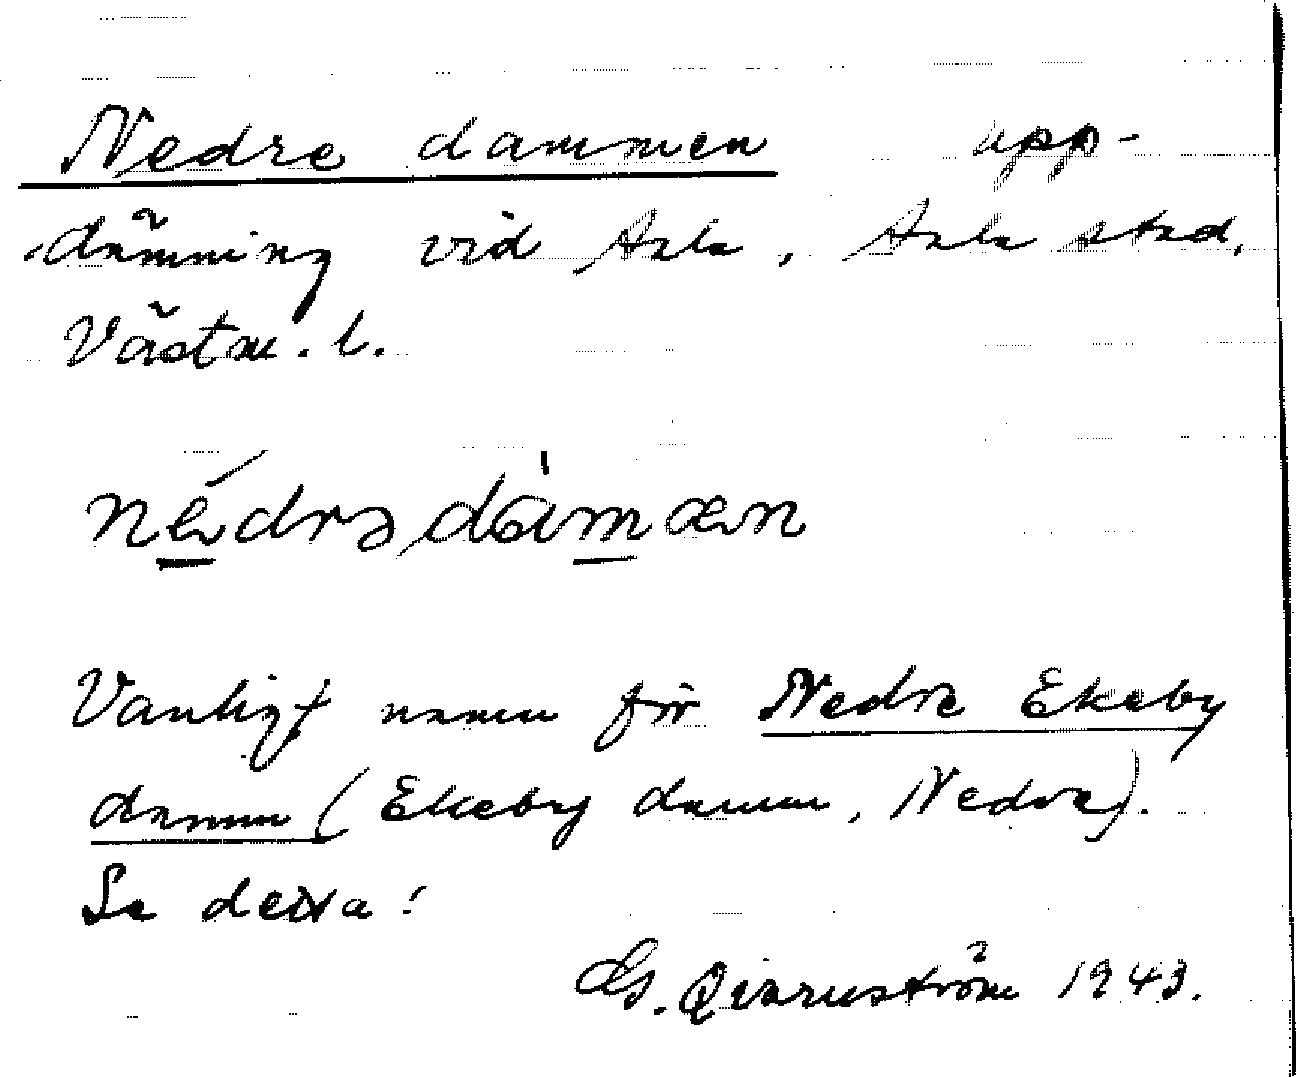 Nedre dammen upp-
dämning vid Sala, Sala stad,
Västm. l.
nédrə dàmæn
Vanligt namn för Nedre Ekeby
damm (Ekeby damm, Nedre).
Se dessa!
G. Qvarnström 1943.